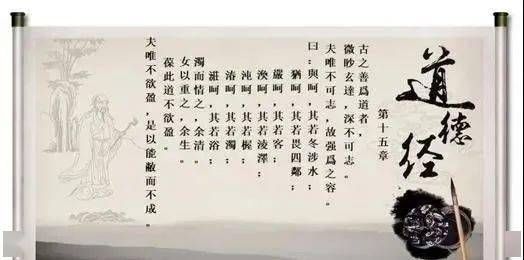 道德经
第十五章
古之善爲道者，
微眇玄達，深不可志。
夫唯不可志，故强爲之容。
曰：與呵，其若冬涉水；
猶呵，其若畏四鄰；
嚴呵，其若客；
渙呵，其若淩澤；
沌呵，其若楃；
湷呵，其若濁；
湛呵，其若浴；
濁而情之，余清。
女以重之，余生。
葆此道不欲盈。
夫唯不欲盈，是以能敝而不成。